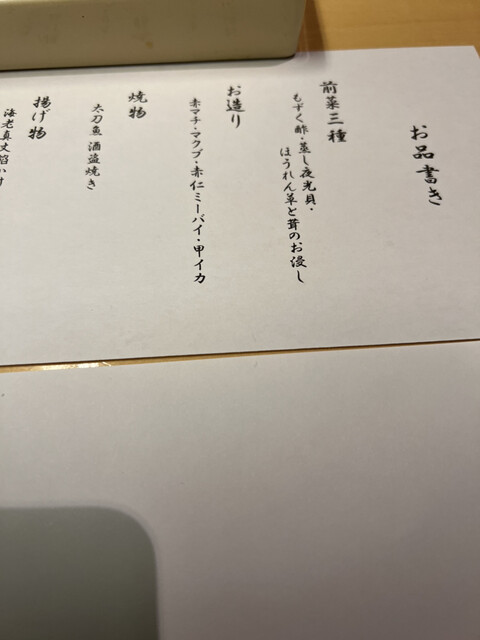 お品書き
前菜三種
もずく酢・蒸し夜光貝・
ほうれん草と茸のお浸し
お造り
赤マチ・マクブ・赤仁ミーバイ・甲イカ
焼物
太刀魚 酒盗焼き
揚げ物
海老真丈